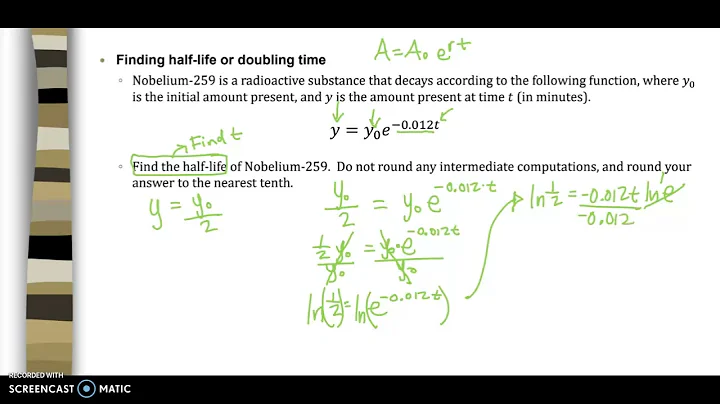 • Finding half-life or doubling time
A = A₀ e^rt
◦ Nobelium-259 is a radioactive substance that decays according to the following function, where y₀
is the initial amount present, and y is the amount present at time t (in minutes).
y = y₀e^−0.012t
Find t
◦ Find the half-life of Nobelium-259. Do not round any intermediate computations, and round your
answer to the nearest tenth.
y = y₀/2
y₀/2 = y₀e^−0.012·t
1/2 y₀/y₀ = y₀·e^−0.012t/y₀
ln(1/2) = ln(e^−0.012t)
ln 1/2 = −0.012t ln e 1
−0.012
RECORDED WITH
SCREENCAST MATIC